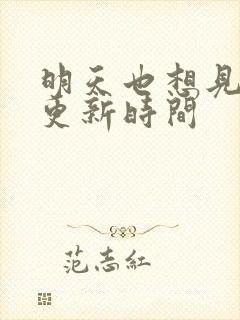 明天也想見
更新時間
范志紅